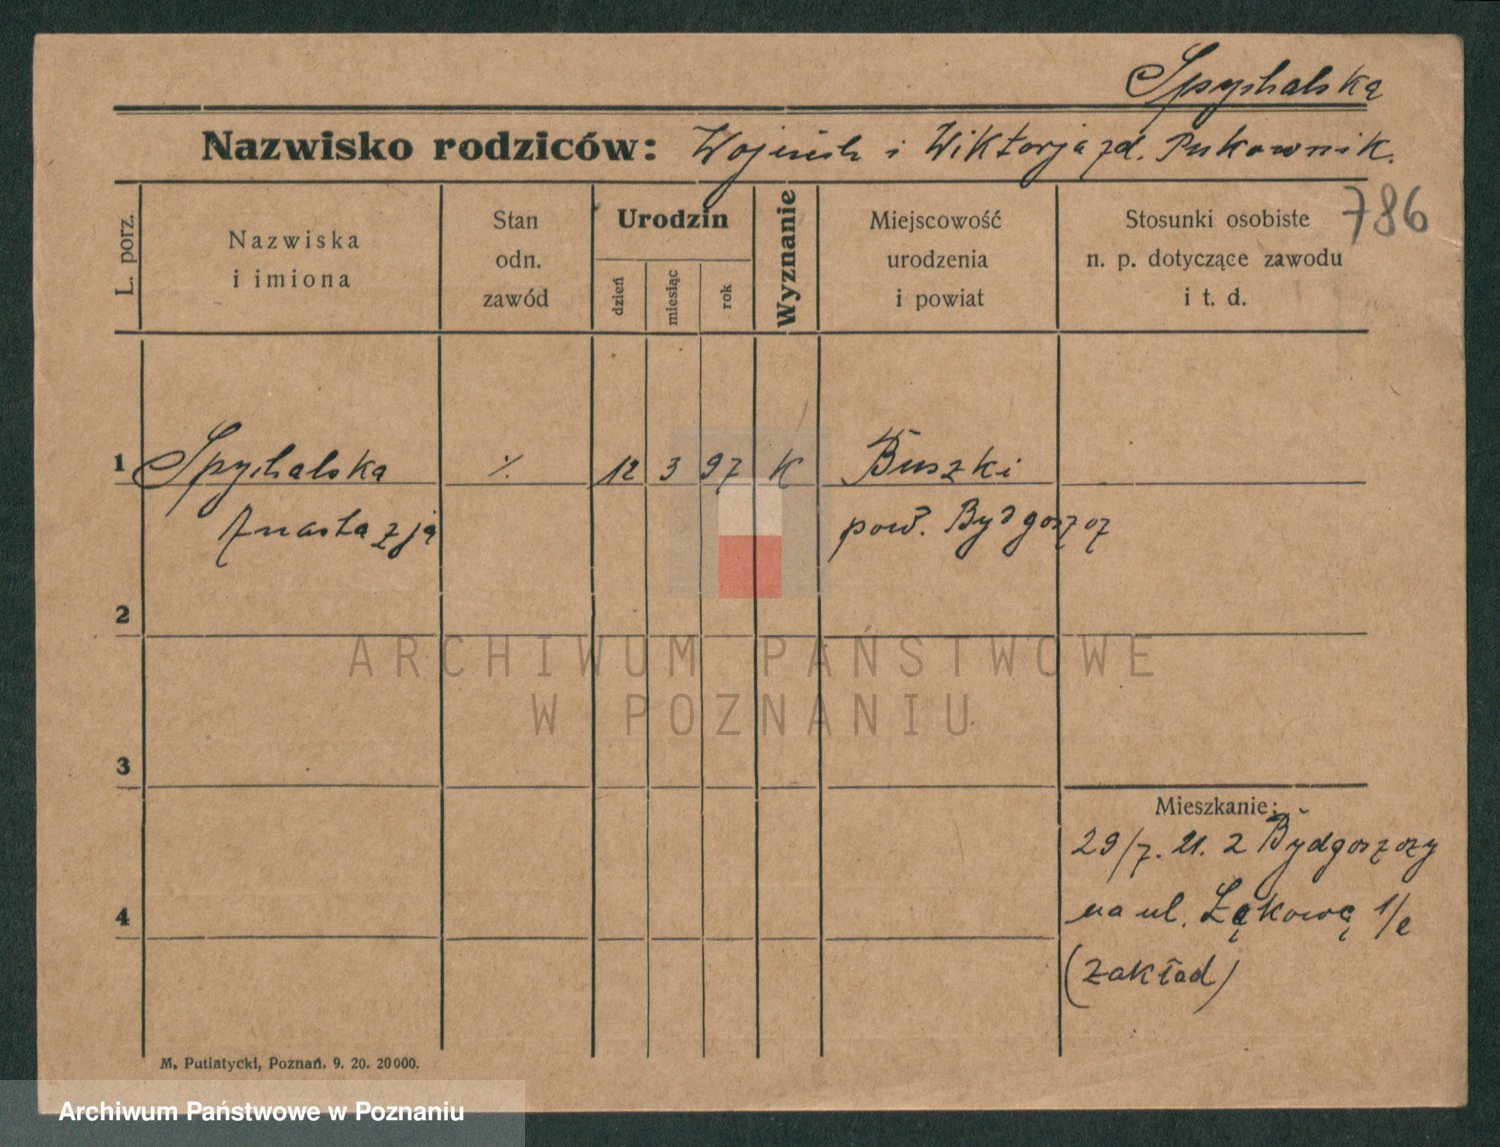 Spychalska
Nazwisko rodziców: Wojciech i Wiktorja zd. Pukownik.
786
L. porz.
Nazwiska
i imiona
Stan
odn.
zawód
Urodzin
dzień
miesiąc
rok
Wyznanie
Miejscowość
urodzenia
i powiat
Stosunki osobiste
n. p. dotyczące zawodu
i t. d.
1 Spychalska % 12 3 97 K Buszki
Anastazja pow. Bydgoszcz
2
ARCHIWUM PAŃSTWOWE
W POZNANIU
3
Mieszkanie:
29/7. 21. z Bydgoszczy
4 na ul. Łąkową 1/e
(zakład)
M. Putiatycki, Poznań. 9. 20. 20000.
Archiwum Państwowe w Poznaniu